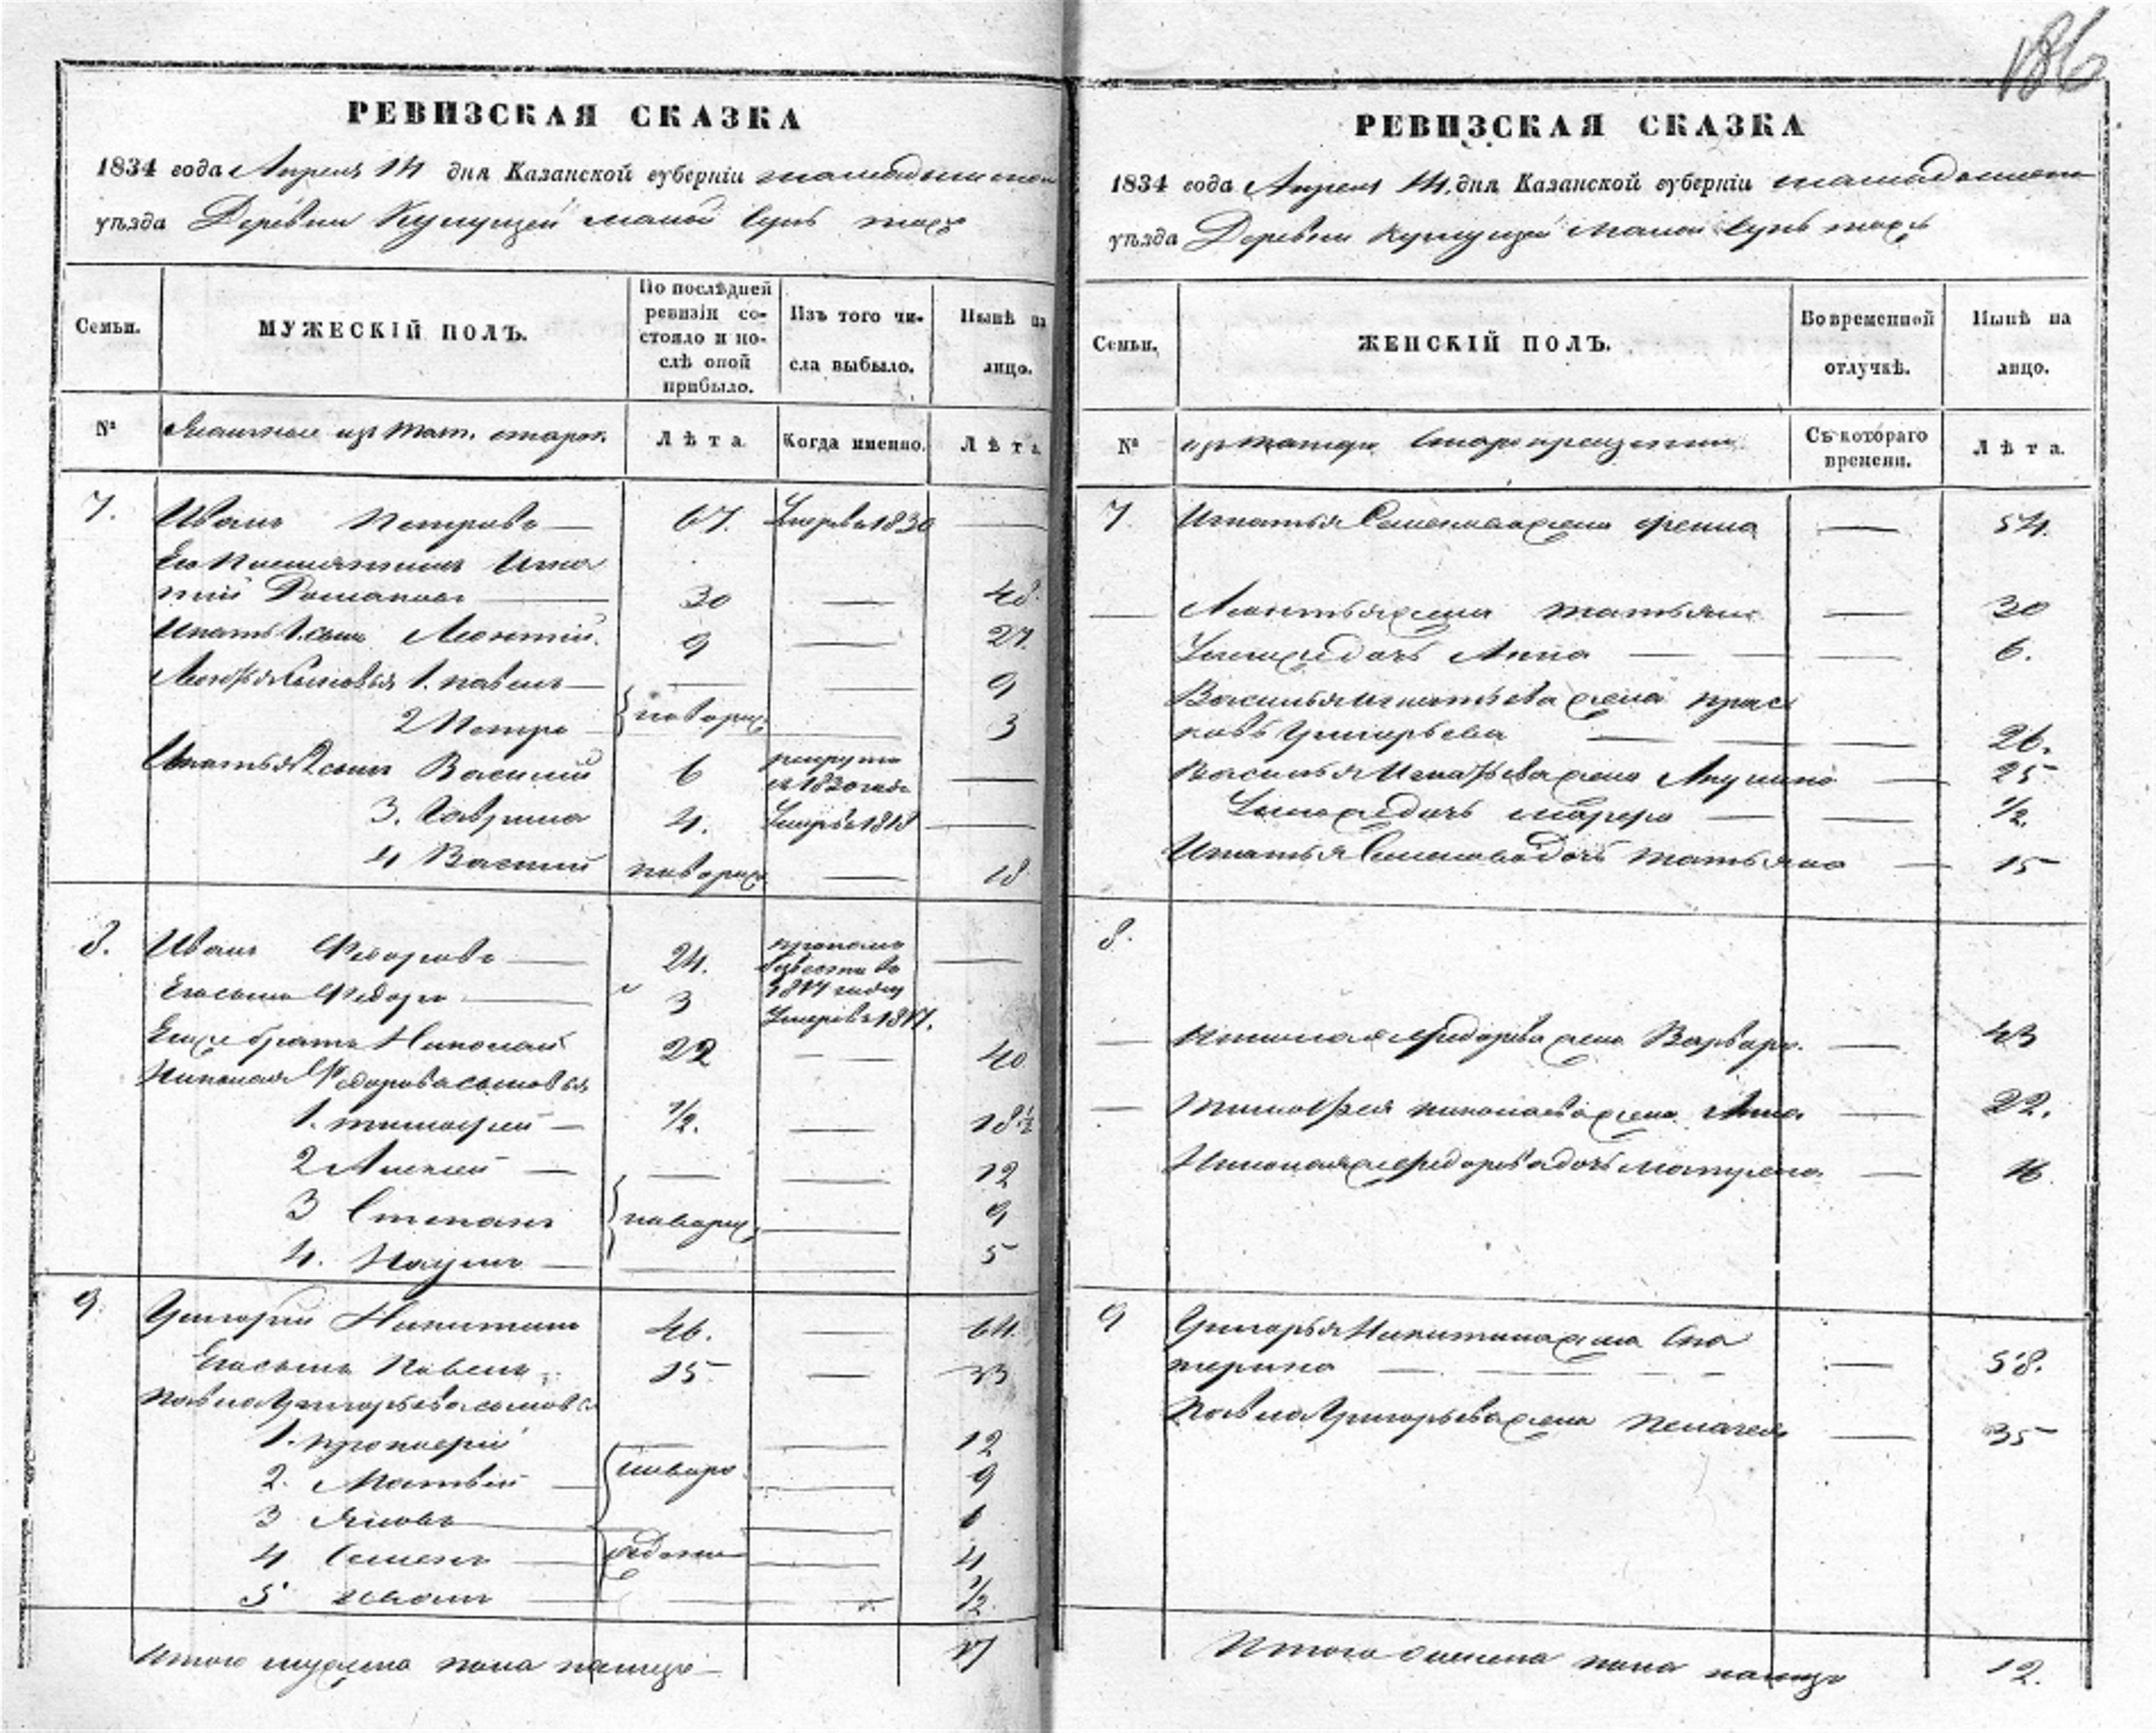 186
РЕВИЗСКАЯ СКАЗКА
1834 года Апреля 14 дня Казанской губерніи
уѣзда Деревни малой
Семьи.
МУЖЕСКІЙ ПОЛЪ.
По послѣдней
ревизіи со-
стояло и по-
слѣ оной
прибыло.
Изъ того чи-
сла выбыло.
Нынѣ на
лицо.
№
изъ тат. старок.
Лѣта
Когда именно.
Лѣта.
7. Иванъ Петровъ 67. Умеръ в 1830
Его Племянникъ Игна
тій 30 48.
Игнать 1. сынъ Леонтій. 9 27.
сыновья 1. павелъ 9
2 Петръ 3
Игнатья 2 сынъ Василій 6
1830
3. Гаврила 4. Умеръ в 1818
4 Василій 18
8. Иванъ Федоровъ 24.
Его сынъ Федоръ 3
Умеръ в 1817.
Его же братъ Николай 22 40
Николая Федорова сыновья
1. тимофей 1/2. 18 1/2
2 Алексей 12
3 Степанъ 9
4. Наумъ 5
9. Григорій Никитинъ 46. 64.
Его сынъ Павелъ 15 33
Павла Григорьева сыновья
1. прокофей 12
2. Матвей 9
3 Яковъ 6
4 Семенъ 4
5 Иванъ 1/2.
Итого мужеска пола налицо 17
РЕВИЗСКАЯ СКАЗКА
1834 года Апреля 14. дня Казанской губерніи
уѣзда Деревни малой
Семьи.
ЖЕНСКІЙ ПОЛЪ.
Во временной
отлучкѣ.
Нынѣ на
лицо.
№
изъ татаръ старокрещенныхъ
Съ котораго
времени.
Лѣта.
7. Игнатья жена 54.
Леонтья жена татьяна 30
У них дочь Анна 6.
Василья Игнатьева жена прас
ковья Григорьева 26.
Василья Игнатьева жена Акулина 25
дочь 1/2.
Игнатья дочь татьяна 15
8.
Николая Федорова жена Варвара. 43
Тимофея николаева жена Анна 22.
Николая Федорова дочь матрена 16.
9 Григорья Никитина жена Ека
терина 58.
Павла Григорьева жена Пелагея 35
Итого женска пола налицо 12.